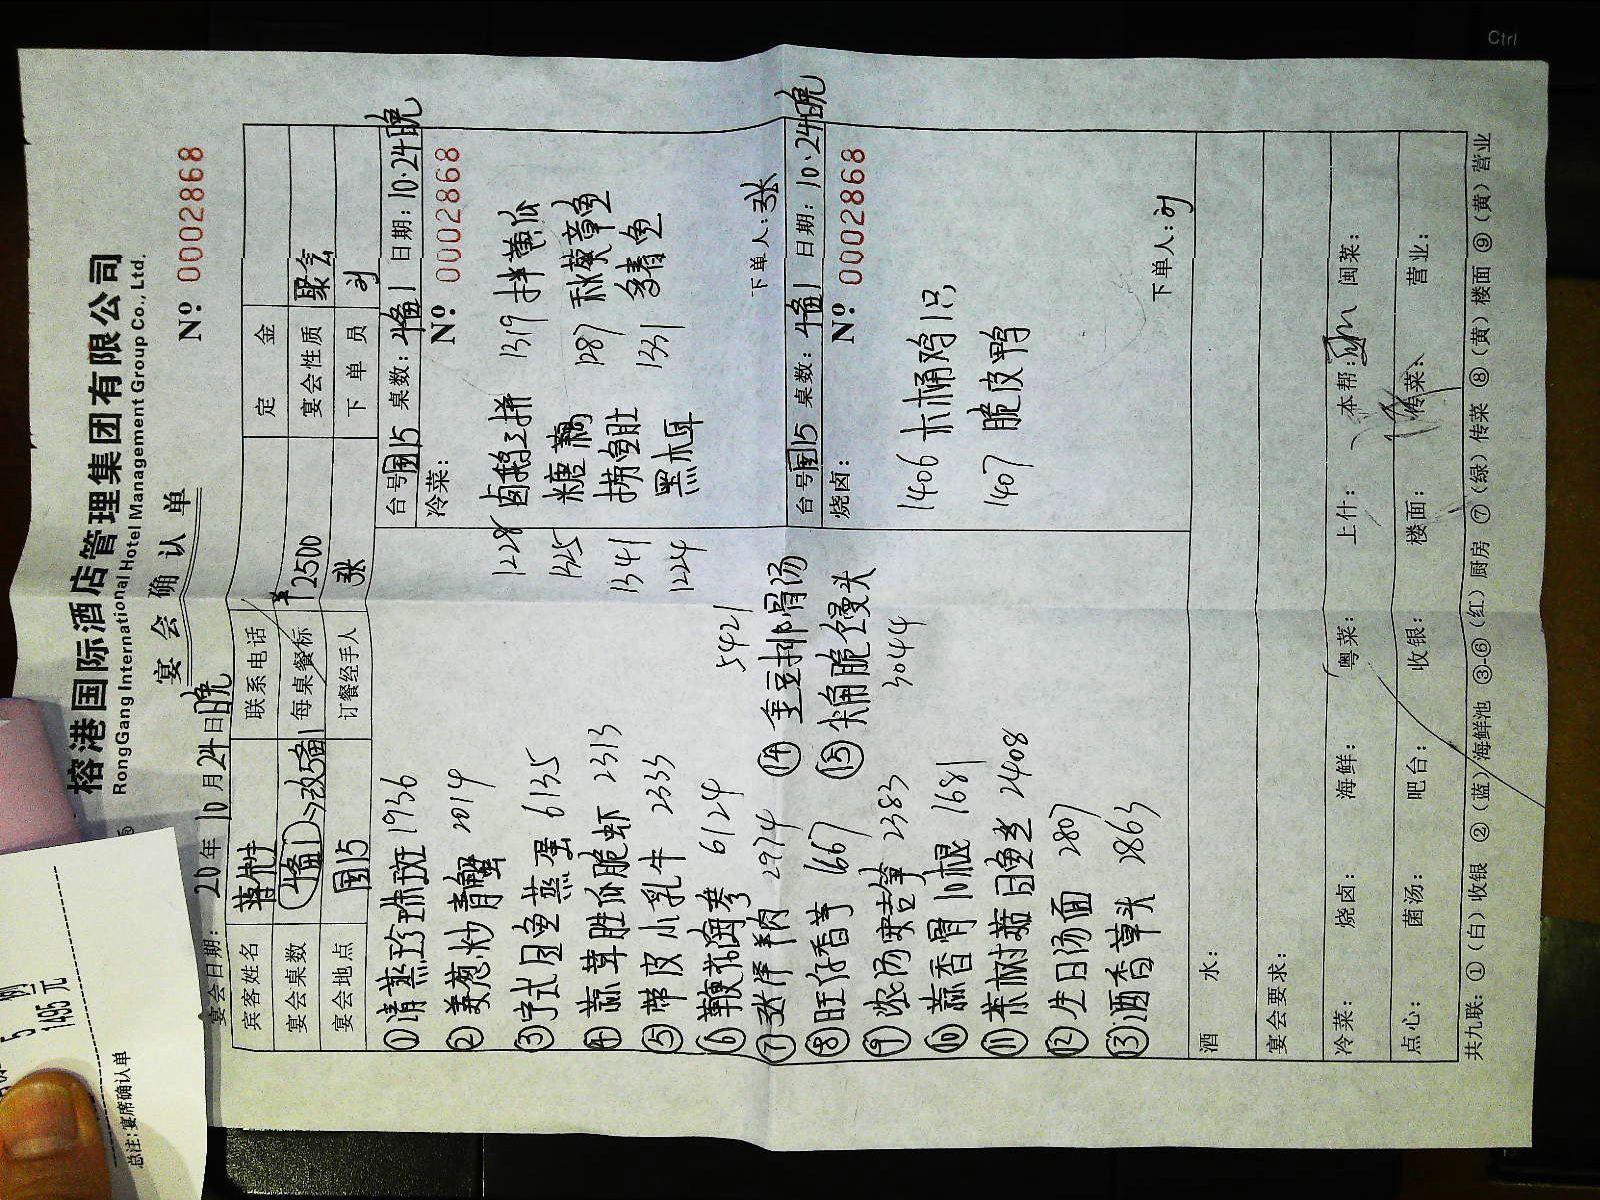 榕港国际酒店管理集团有限公司
RongGang International Hotel Management Group Co., Ltd.
宴会确认单
Nº 0002868
宴会日期: 20 年 10 月 24 日 晚
宾客姓名 联系电话 定金
宴会桌数 每桌餐标 ¥2500 宴会性质 聚会
宴会地点 围15 订餐经手人 张 下单员 刘
①清蒸珍珠斑 1936
②姜葱炒青蟹 2014
③宁式目鱼蒸蛋 6135
④蒜茸胜瓜脆虾 2313
⑤带皮小乳牛 2333
⑥鞭笋海参 6124
⑦羊肉 2974
⑧旺仔香芋 1667
⑨浓汤 2383
⑩蒜香骨 1681
⑪茶树菇目鱼 2408
⑫生日汤面 2807
⑬酒香草头 2863
⑭金豆排骨汤 5421
⑮尖角脆馒头 3044
台号 围15 桌数: 1 日期: 10.24晚
冷菜: Nº 0002868
1228 卤鹅三拼 1319 拌黄瓜
1325 糖藕 1287 秋葵章鱼
1341 捞鱼肚 1331
1224 黑木耳
下单人: 张
台号 围15 桌数: 1 日期: 10.24晚
烧卤: Nº 0002868
1406 木桶鸡1只
1407 脆皮鸭
下单人: 刘
酒水:
宴会要求:
冷菜: 烧卤: 海鲜: 粤菜: 上什: 本帮: 闽菜:
点心: 菌汤: 吧台: 收银: 楼面: 传菜: 营业:
共九联: ①(白)收银 ②(蓝)海鲜池 ③-⑥(红)厨房 ⑦(绿)传菜 ⑧(黄)楼面 ⑨(黄)营业
1495元
总注:宴席确认单
Ctrl